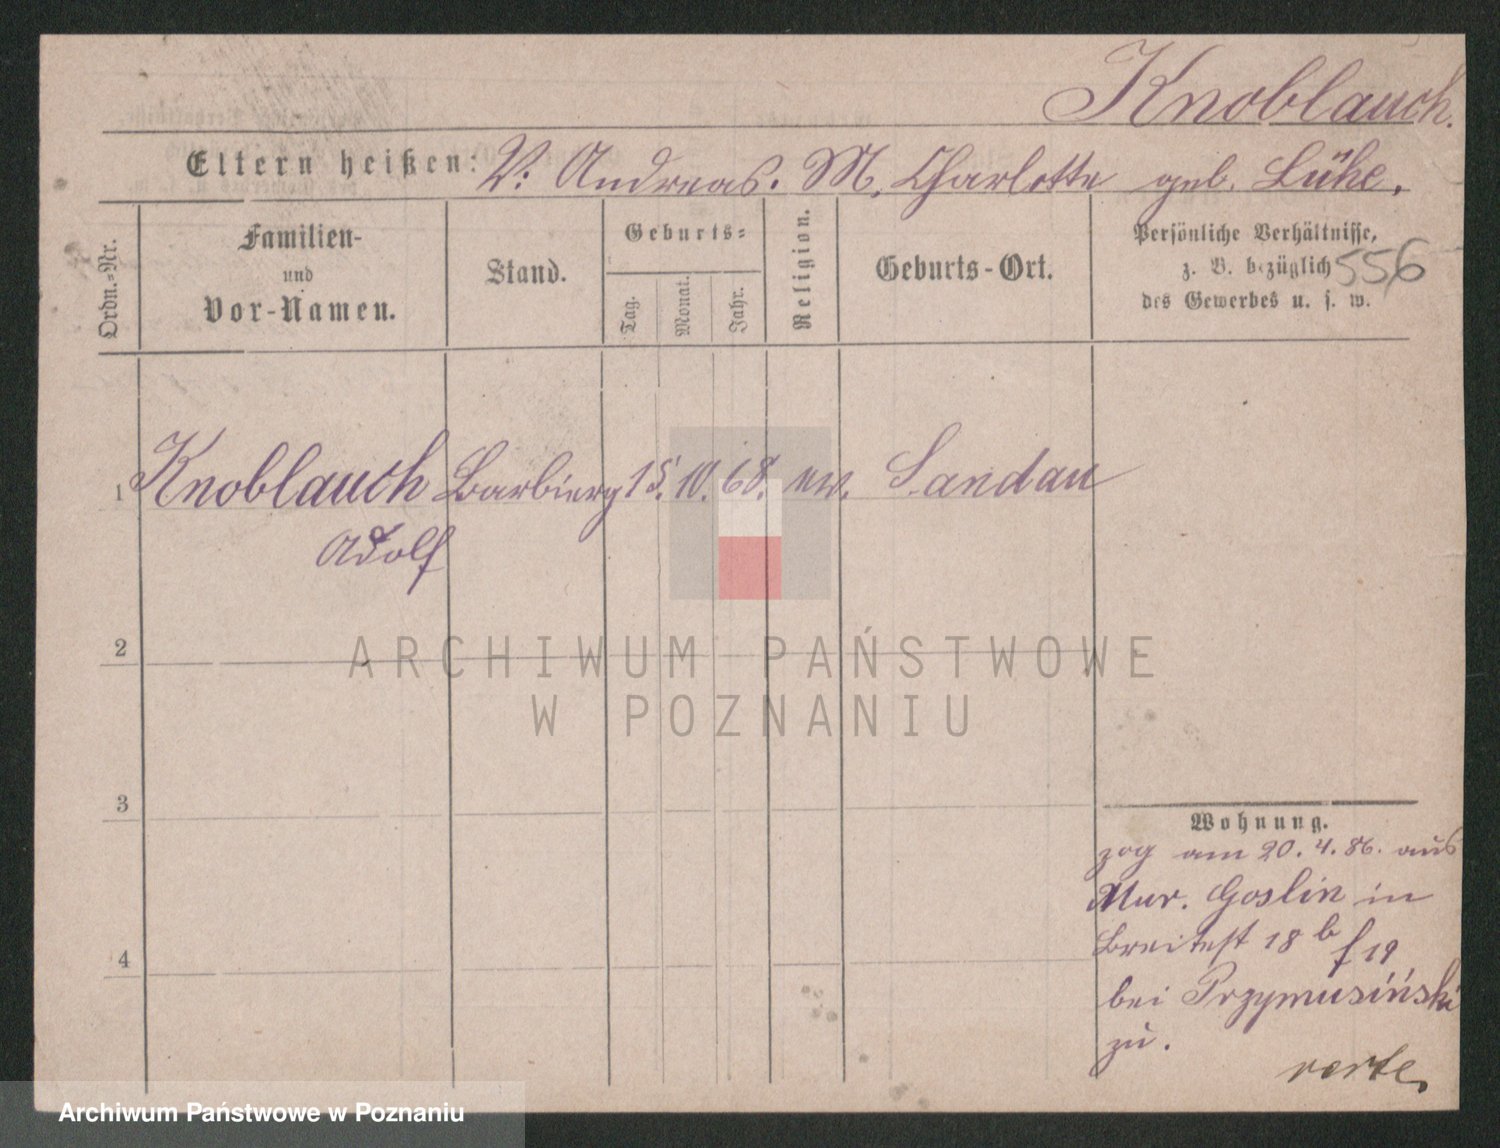 Knoblauch.
Eltern heißen: V: Andreas. M. Charlotte geb. Lühe.
Ordn.-Nr.
Familien-
und
Vor-Namen.
Stand.
Geburts-
Tag.
Monat.
Jahr.
Religion.
Geburts-Ort.
Persönliche Verhältnisse,
z. B. bezüglich
des Gewerbes u. s. w.
556
1 Knoblauch Barbierg 15. 10. 68. ev. Sandau
Adolf
2
3
4
Wohnung.
zog am 20. 4. 86. aus
Mur. Goslin in
Breitest 18 b f 19
bei Przymusiński
zu.
verte
ARCHIWUM PAŃSTWOWE
W POZNANIU
Archiwum Państwowe w Poznaniu